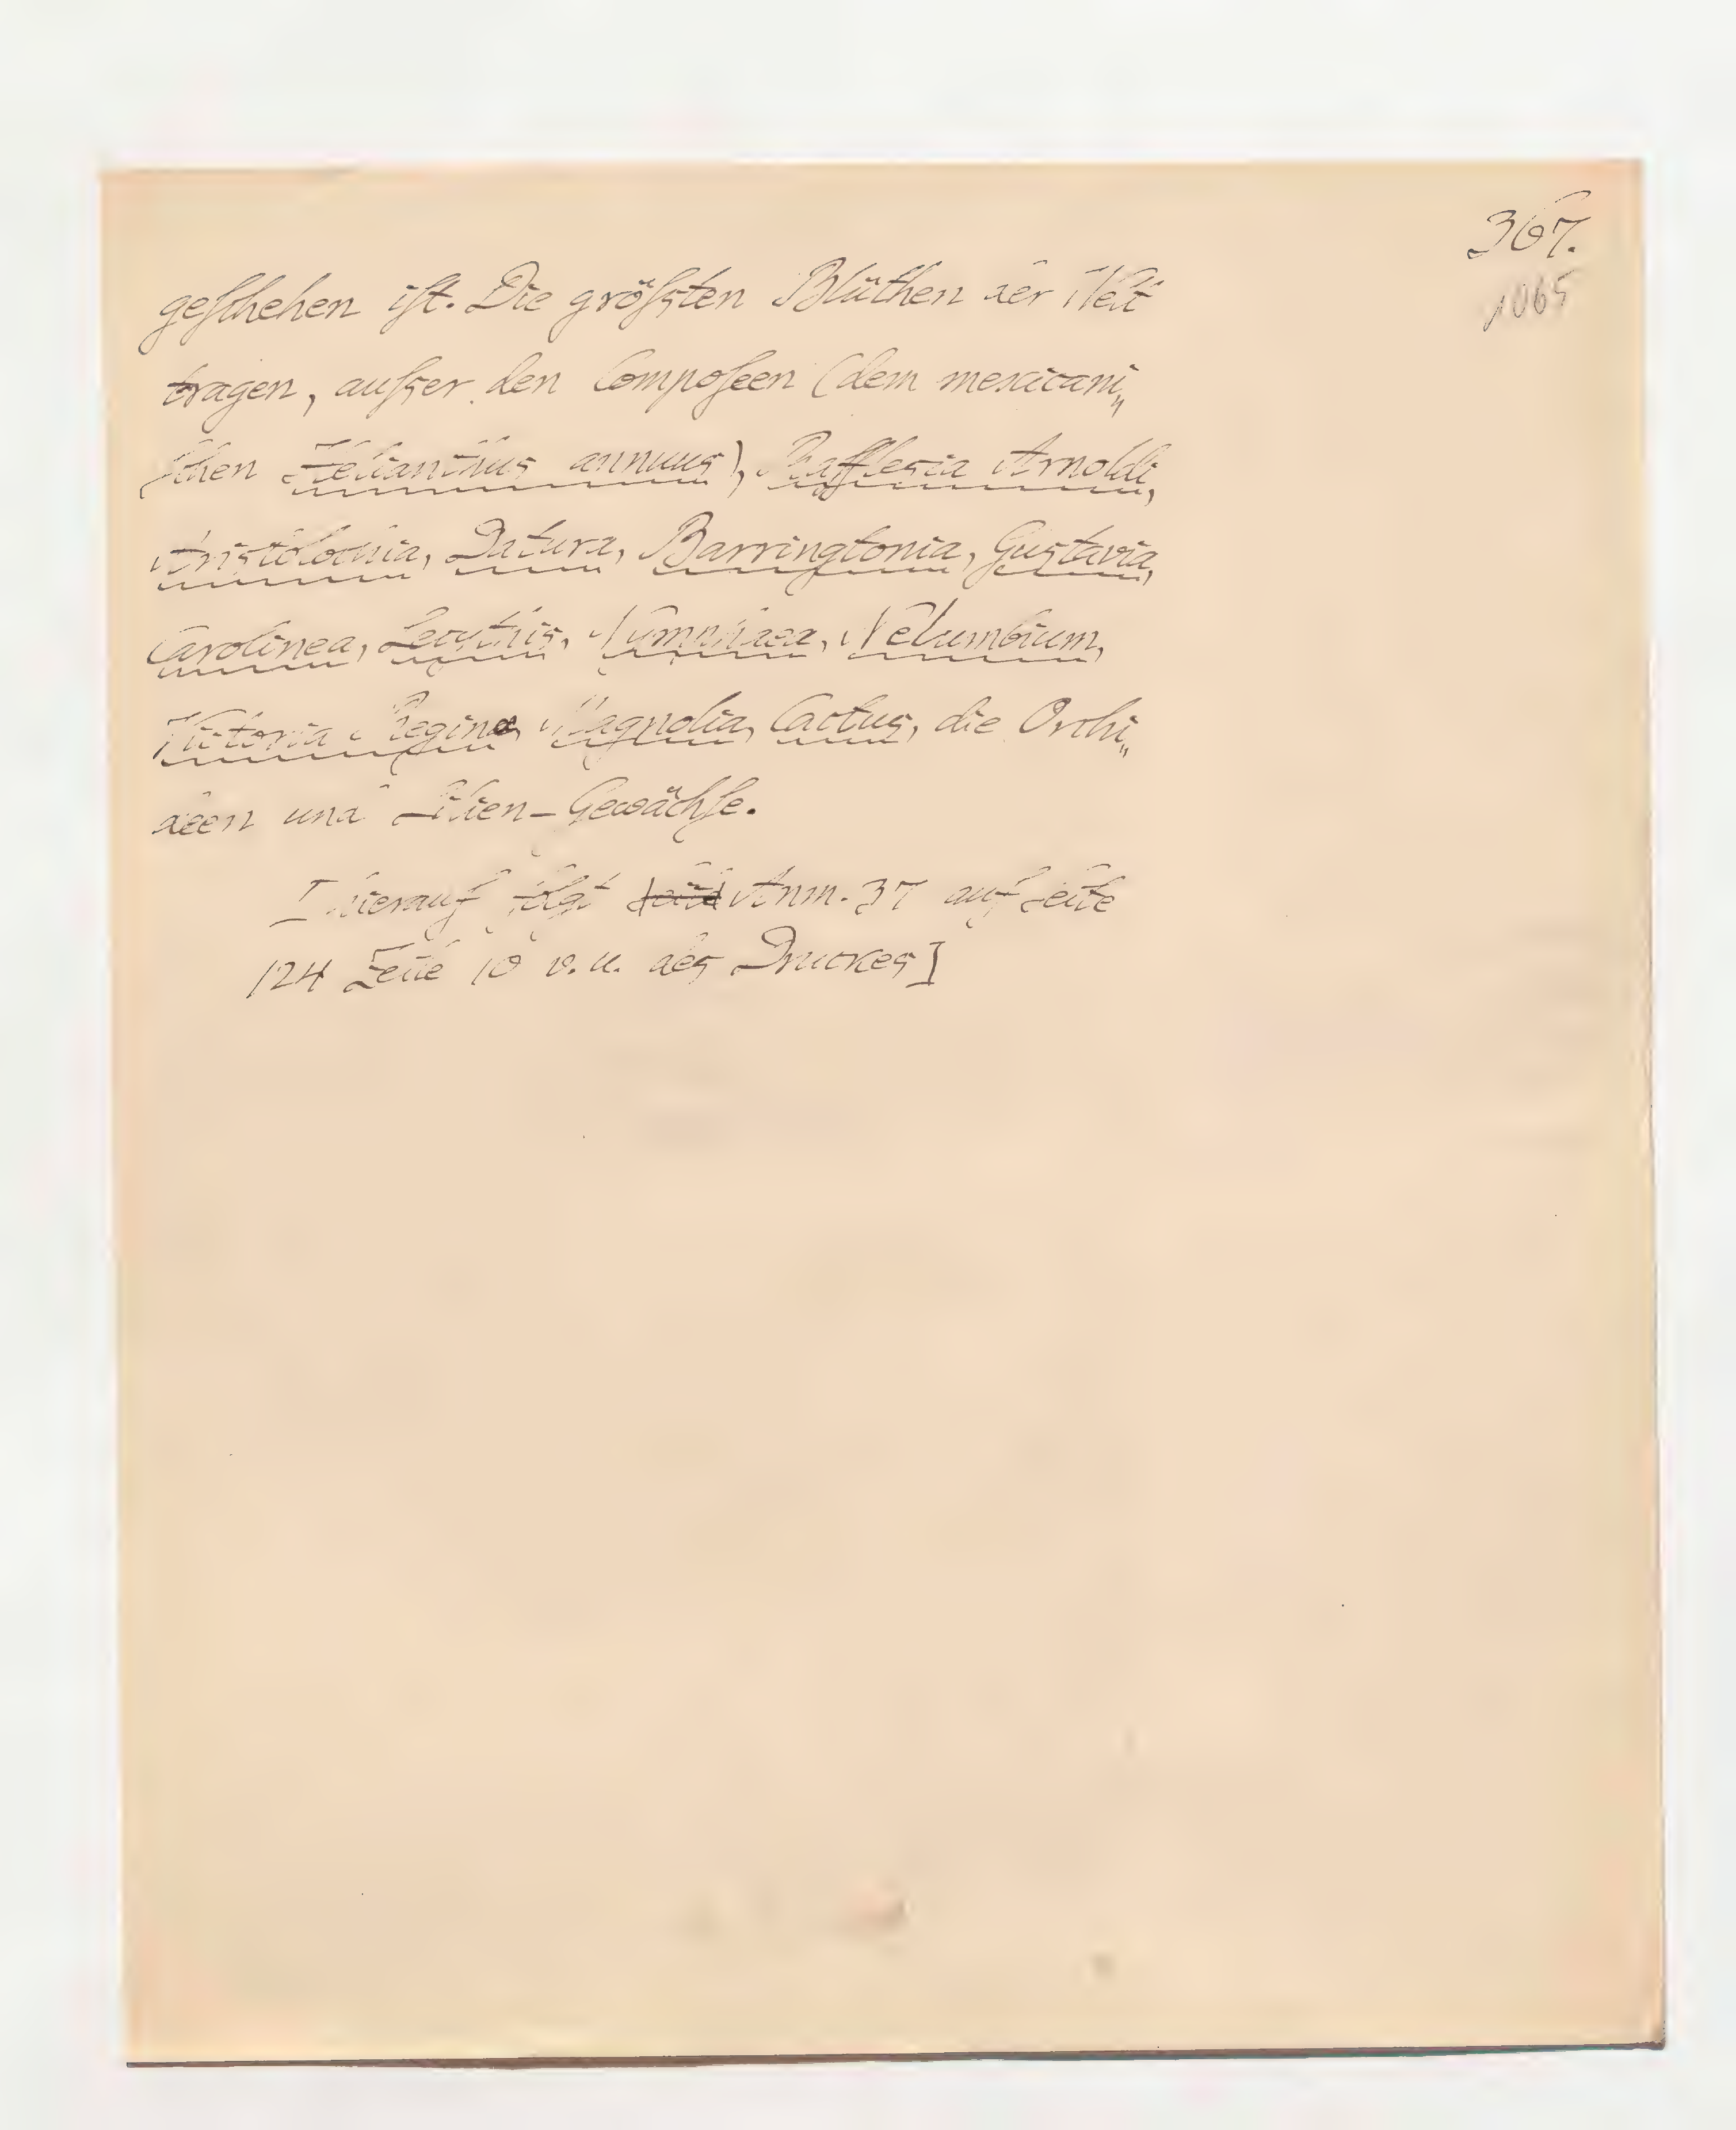 367.
1065
geſchehen iſt. Die gröſsten Blüthen der Welt
tragen, auſser den Compoſeen (dem mexicani„
ſchen Helianthus annuus), Rafflesia Arnoldi,
Aristolochia, Datura, Barringtonia, Gustavia,
Carolinea, Lecythis, Nymphaea, Nelumbium,
Victoria Regina, Magnolia, Cactus, die Orchi„
deen und Lilien-Gewächſe.
[hierauf folgt Anm. 37 auf Seite
124 Zeile 10 v. u. des Druckes]